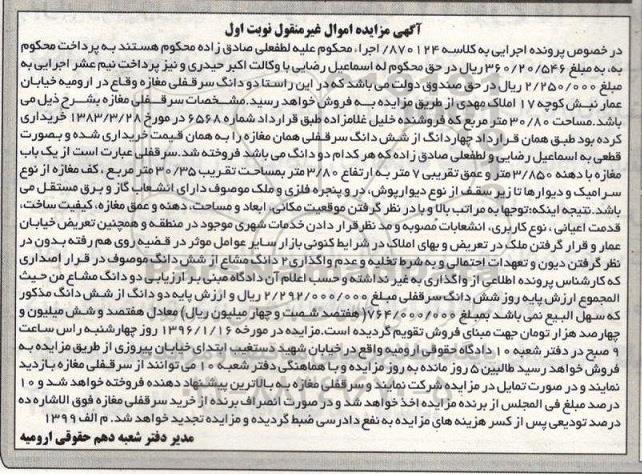 آگهی مزایده اموال غیرمنقول نوبت اول
در خصوص پرونده اجرایی به کلاسه ۸۷۰۱۲۴/ اجرا، محکوم علیه لطفعلی صادق زاده محکوم هستند به پرداخت محکوم
به، به مبلغ ۳۶۰/۲۰/۵۴۶ ریال در حق محکوم له اسماعیل رضایی با وکالت اکبر حیدری و نیز پرداخت نیم عشر اجرایی به
مبلغ ۲/۲۵۰/۰۰۰ ریال در حق صندوق دولت می باشد که در این راستا دو دانگ سرقفلی مغازه وقاع در ارومیه خیابان
عمار نبش کوچه ۱۷ املاک مهدی از طریق مزایده به فروش خواهد رسید. مشخصات سرقفلی مغازه بشرح ذیل می
باشد. مساحت ۳۰/۸۰ متر مربع که فروشنده خلیل غلامزاده طبق قرارداد شماره ۶۵۶۸ در مورخ ۱۳۸۳/۳/۲۸ خریداری
کرده بود طبق همان قرارداد چهار دانگ از شش دانگ سرقفلی همان مغازه را به همان قیمت خریداری شده و بصورت
قطعی به اسماعیل رضایی و لطفعلی صادق زاده که هر کدام دو دانگ می باشد فروخته شد. سرقفلی عبارت از یک باب
مغازه با دهنه ۳/۸۵۰ متر و عمق تقریبی ۷ متر به ارتفاع ۳/۸۰ متر بمساحت تقریب ۳۰/۳۵ متر مربع ، کف مغازه از نوع
سرامیک و دیوارها تا زیر سقف از نوع دیوارپوش، در و پنجره فلزی و ملک موصوف دارای انشعاب گاز و برق مستقل می
باشد. نتیجه اینکه: توجها به مراتب بالا و با در نظر گرفتن موقعیت مکانی، ابعاد و مساحت، دهنه و عمق مغازه، کیفیت ساخت،
قدمت اعیانی ، نوع کاربری، انشعابات مصوبه و مد نظر قرار دادن خدمات شهری موجود در منطقه و همچنین تعریض خیابان
عمار و قرار گرفتن ملک در تعریض و بهای املاک در شرایط کنونی بازار سایر عوامل موثر در قضیه روی هم رفته بدون در
نظر گرفتن دیون و تعهدات احتمالی و به شرط تخلیه و عدم واگذاری ۲ دانگ مشاع از شش دانگ موصوف در قرار اصداری
که کارشناس پرونده اطلاعی از واگذاری به غیر نداشته و حسب اعلام آن دادگاه مبنی بر ارزیابی دو دانگ مشاع من حیث
المجموع ارزش پایه روز شش دانگ سرقفلی مبلغ ۲/۲۹۲/۰۰۰/۰۰۰ ریال و ارزش پایه دو دانگ از شش دانگ مذکور
که سهل البیع نمی باشد بمبلغ ۷۶۴/۰۰۰/۰۰۰( هفتصد شصت و چهار میلیون ریال) معادل هفتصد وشش میلیون و
چهارصد هزار تومان جهت مبنای فروش تقویم گردیده است. مزایده در مورخه ۱۳۹۶/۱/۱۶ روز چهارشنبه راس ساعت
۹ صبح در دفتر شعبه ۱۰ دادگاه حقوقی ارومیه واقع در خیابان شهید دستغیب ابتدای خیابان پیروزی از طریق مزایده به
فروش خواهد رسید طالبین ۵ روز مانده به روز مزایده و با هماهنگی دفتر شعبه ۱۰ می توانند از سرقفلی مغازه بازدید
نمایند و در صورت تمایل در مزایده شرکت نمایند و سرقفلی مغازه به بالاترین پیشنهاد دهنده فروخته خواهد شد و ۱۰
درصد مبلغ فی المجلس از برنده مزایده اخذ خواهد شد و در صورت انصراف برنده از خرید سرقفلی مغازه فوق الاشاره ده
درصد تودیعی پس از کسر هزینه های مزایده به نفع دادرسی ضبط گردیده و مزایده تجدید خواهد شد. م الف ۱۳۹۹
مدیر دفتر شعبه دهم حقوقی ارومیه